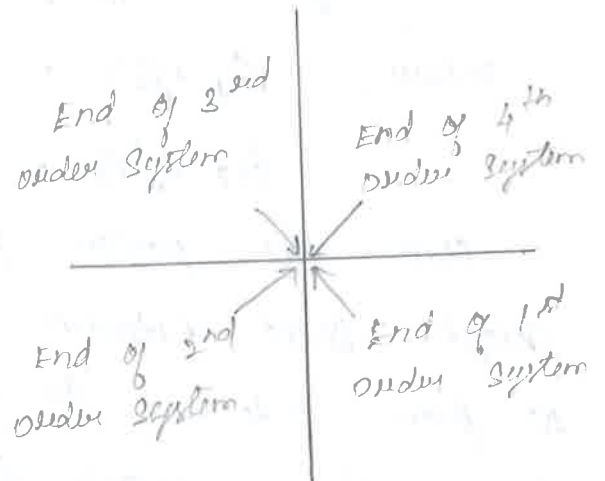 End of 3rd
order System
End of 4th
order System
End of 2nd
order System
End of 1st
order System